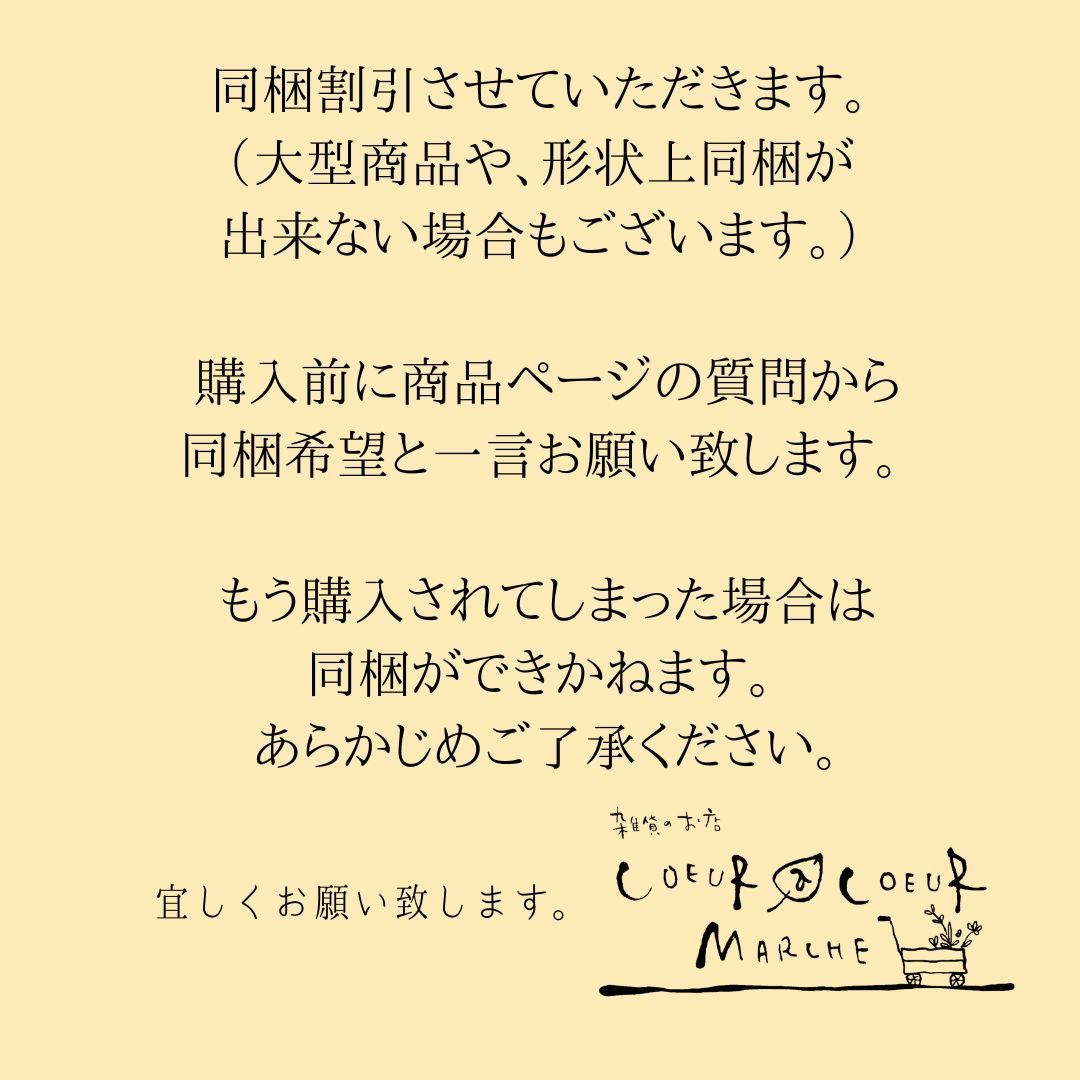 同梱割引させていただきます。
（大型商品や、形状上同梱が
出来ない場合もございます。）
購入前に商品ページの質問から
同梱希望と一言お願い致します。
もう購入されてしまった場合は
同梱ができかねます。
あらかじめご了承ください。
宜しくお願い致します。
雑貨のお店
COEUR a COEUR
MARCHE